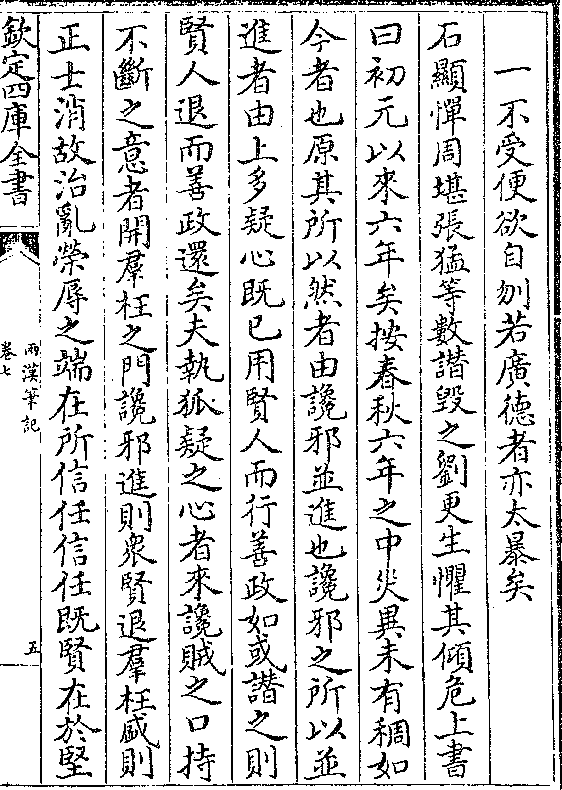 一不受便欲自刎若廣德者亦太暴矣
石顯憚周堪張猛等數譖毀之劉更生懼其傾危上書
曰初元以來六年矣按春秋六年之中災異未有稠如
今者也原其所以然者由讒邪並進也讒邪之所以並
進者由上多疑心既已用賢人而行善政如或譖之則
賢人退而善政還矣夫執狐疑之心者來讒賊之口持
不斷之意者開羣枉之門讒邪進則衆賢退羣枉盛則
正士消故治亂榮辱之端在所信任信任既賢在於堅
欽定四庫全書
兩漢筆記
卷七
五